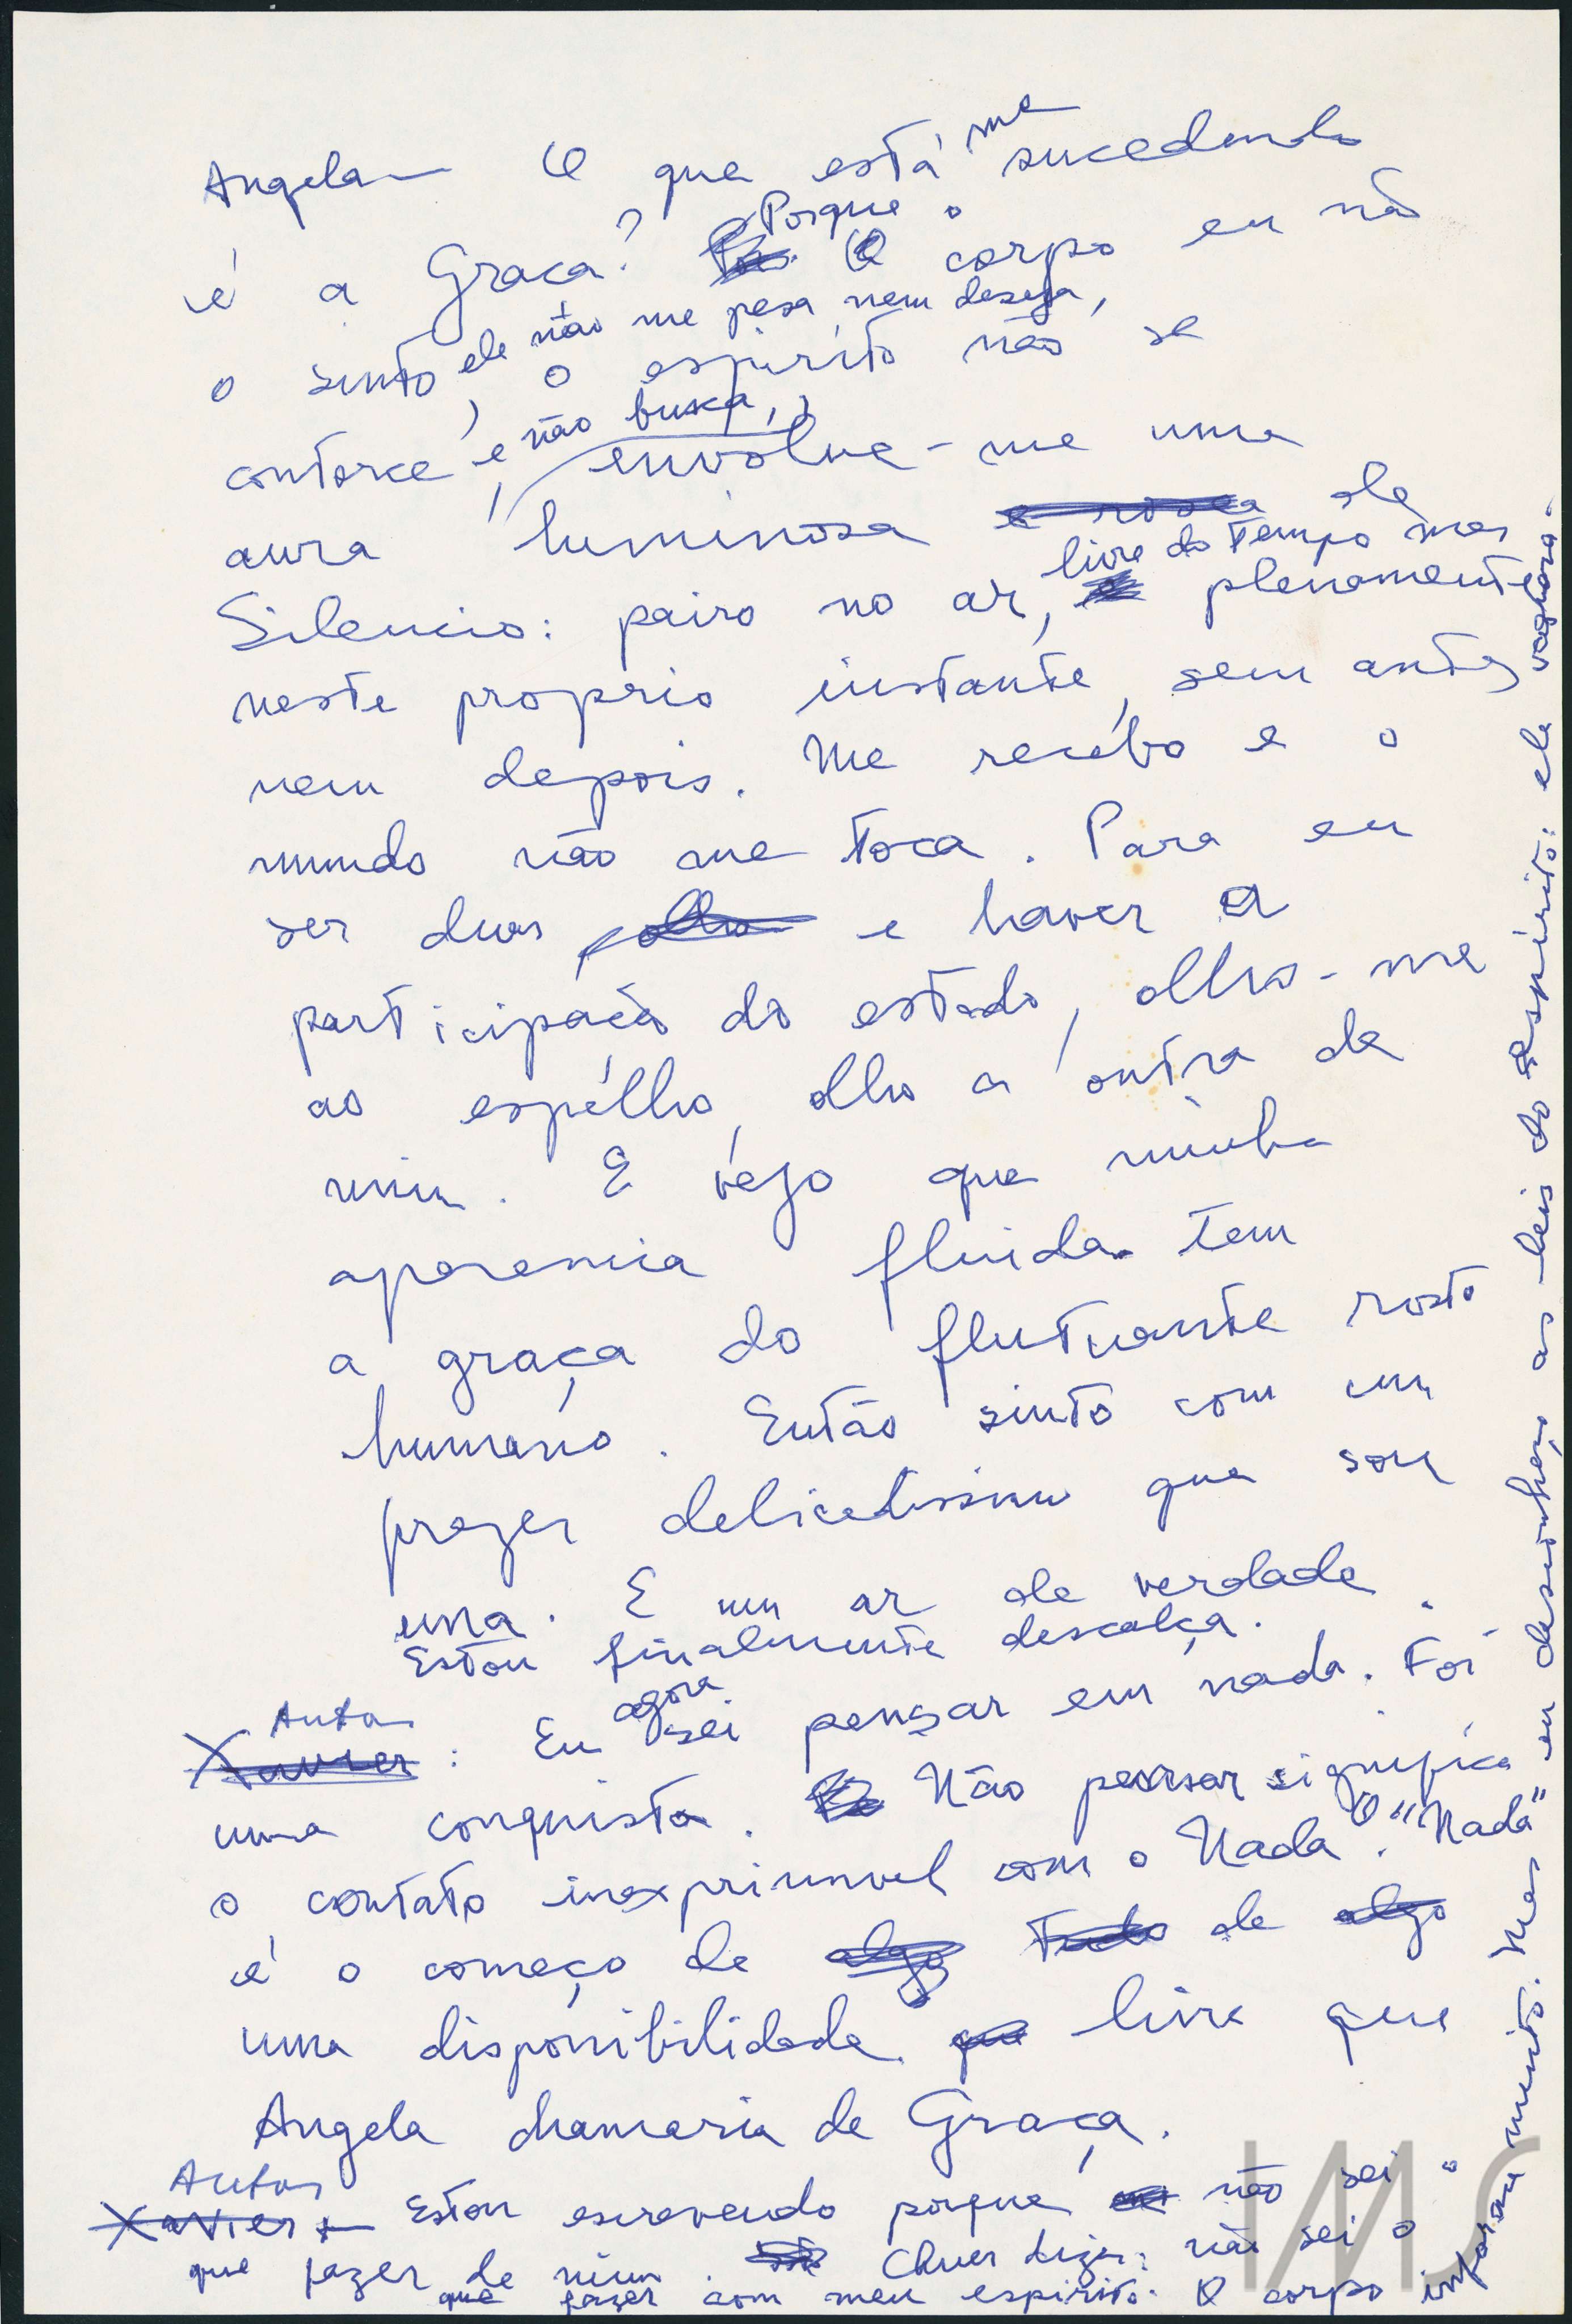 Angela — O que está me sucedendo
é a Graça? Porque o corpo eu não
o sinto, ele não me pesa nem deseja,
o espirito não se
contorce e não busca,
envolve-me uma
aura luminosa e rosea de
livre do tempo mas
Silencio: pairo no ar, plenamente
neste proprio instante, sem antes
nem depois. Me recébo e o
mundo não me toca. Para eu
ser duas e haver a
participação do estado, olho-me
ao espêlho, olho a outra de
mim. E vejo que minha
aparencia fluida tem
a graça do flutuante rosto
humano. Então sinto com um
prazer delicadissimo que sou
una. E um ar de verdade.
Estou finalmente descalça.
Autor
Xavier: Eu agora sei pensar em nada. Foi
uma conquista. Não pensar significa
o contato inexprimivel com o Nada. O "Nada"
é o começo de algo Tudo de algo
uma disponibilidade que livre que
Angela chamaria de Graça.
Autor
Xavier — Estou escrevendo porque não sei o
que fazer de mim. Quer dizer: não sei o
que fazer com meu espirito. O corpo informa
muito. Mas eu desconheço as leis do espírito: ele vagueia.
IMS